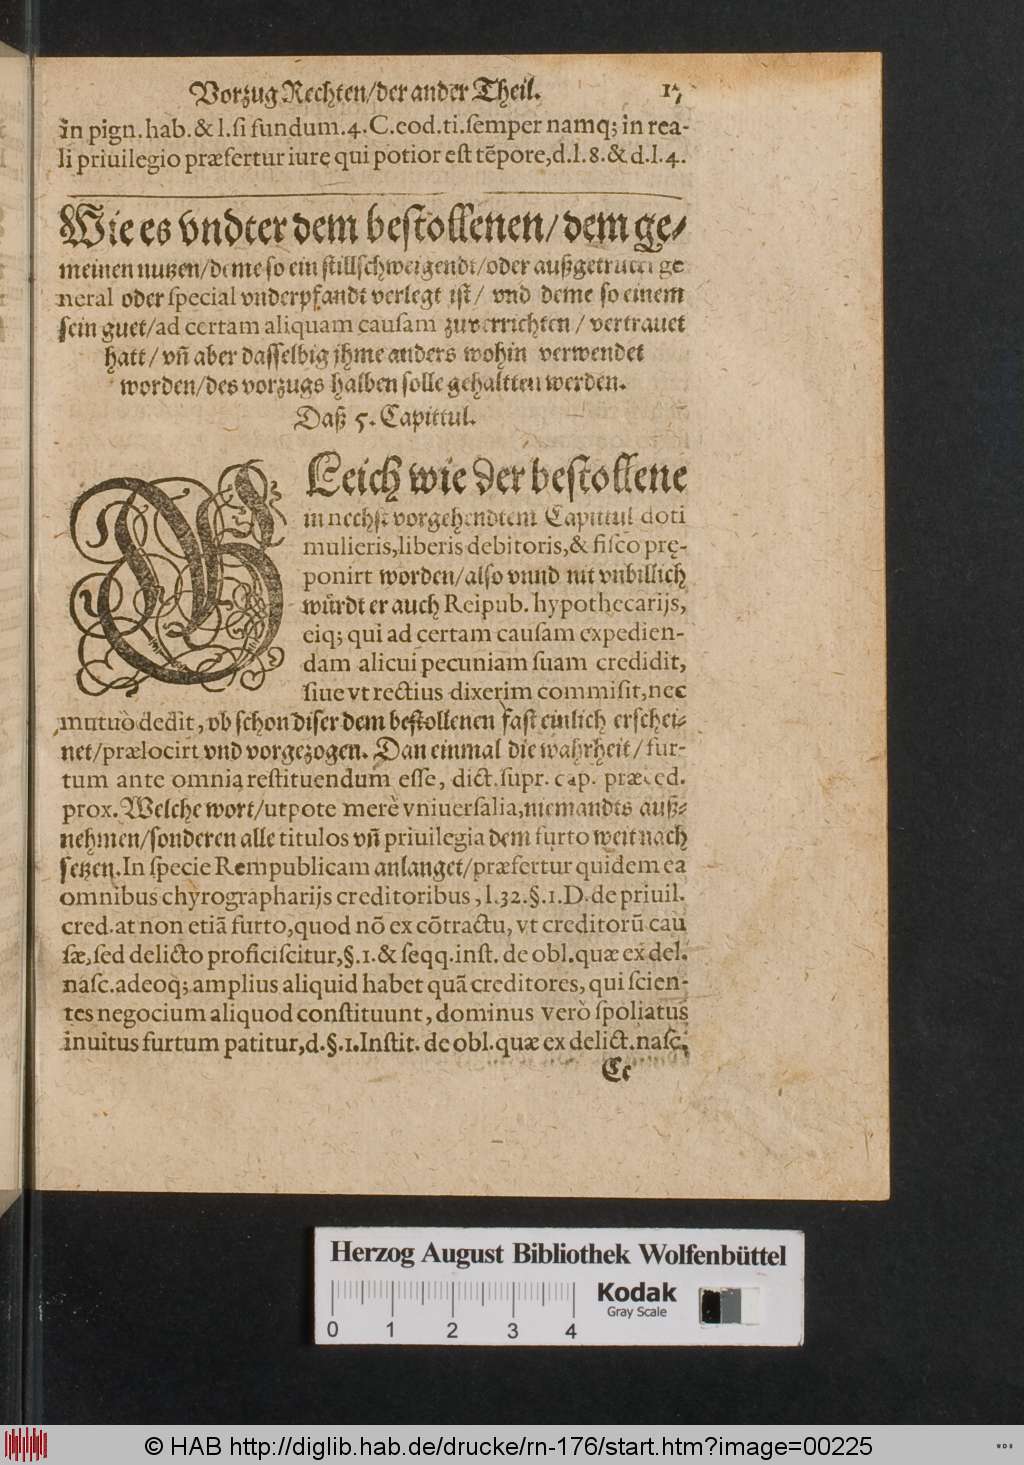 Vorzug Rechten/der ander Theil. 17
in pign. hab. & l. si fundum. 4. C. eod. ti. semper namq; in rea-
li priuilegio præfertur iure qui potior est tẽpore, d. l. 8. & d. l. 4.
Wie es vndter dem bestollenen/dem ge-
meinen nutzen/deme so ein stillschweigendt/oder außgetruckt ge
neral oder special vnderpfandt verlegt ist/ vnd deme so einem
sein guet/ad certam aliquam causam zuverrichten/vertrauet
hatt/vñ aber dasselbig jhme anders wohin verwendet
worden/des vorzugs halben solle gehaltten werden.
Daß 5. Capittul.
GLeich wie der bestollene
in nechst vorgehendtem Capittul doti
mulieris, liberis debitoris, & fisco pRę-
ponirt worden/also vnnd nit vnbillich
würdt er auch Reipub. hypothecarijs,
eiq; qui ad certam causam expedien-
dam alicui pecuniam suam credidit,
siue vt rectius dixerim commisit, nec
mutuò dedit, ob schon diser dem bestollenen fast einlich erschei-
net/prælocirt vnd vorgezogen. Dan einmal die wahrheit/fur-
tum ante omnia restituendum esse, dict. supr. cap. præced.
prox. Welche wort/utpote merè vniuersalia, niemandts auß-
nehmen/sonderen alle titulos vñ priuilegia dem furto weit nach
setzen. In specie Rempublicam anlanget/præfertur quidem ea
omnibus chyrographarijs creditoribus, l. 32. §. 1. D. de priuil.
cred. at non etiã furto, quod nõ ex cõtractu, vt creditorũ cau
sæ, sed delicto proficiscitur, §. 1. & seqq. inst. de obl. quæ ex del.
nasc. adeoq; amplius aliquid habet quã creditores, qui scien-
tes negocium aliquod constituunt, dominus verò spoliatus
inuitus furtum patitur, d. §. 1. Instit. de obl. quæ ex delict. nasc.
Ee
Herzog August Bibliothek Wolfenbüttel
Kodak
Gray Scale
0 1 2 3 4
© HAB http://diglib.hab.de/drucke/rn-176/start.htm?image=00225